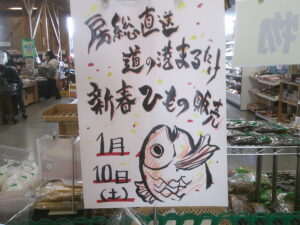 房総直送
道の港まるたけ
新春ひもの販売
1月
10日
(土)
物